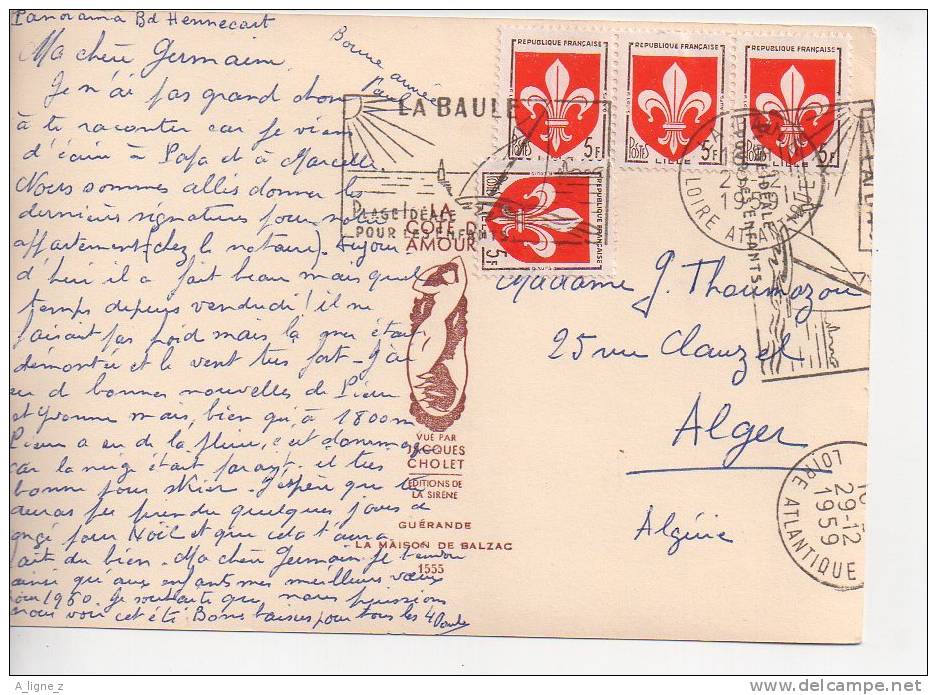 Panorama Bd Hennecart
Bonne année
Ma chère Germaine,
Je n'ai pas grand chose
à te raconter car je viens
d'écrire à Papa et à Marcelle
Nous sommes allés donner les
dernières signatures pour notre
appartement (chez le notaire). Aujour
d'hui il a fait beau mais quel
temps depuis vendredi ! il ne
faisait pas froid mais la mer était
démontée et le vent très fort - J'ai
eu de bonnes nouvelles de Pierre
et Yvonne mais, bien qu'à 1800m
Pierre a eu de la pluie, c'est dommage
car la neige était parait-il très
bonne pour skier. J'espère que tu
auras pu prendre quelques jours de
congé pour Noël et que cela t'aura
fait du bien. Ma chère Germaine Je t'envoie
ainsi qu'aux enfants mes meilleurs vœux
pour 1960. Je souhaite que nous puissions
nous voir cet été. Bons baisers pour tous les 4
LA BAULE
PLAGE IDÉALE
POUR LES ENFANTS
LA
COTE D'
AMOUR
VUE PAR
JACQUES
CHOLET
EDITIONS DE
LA SIRÈNE
GUÉRANDE
LA MAISON DE BALZAC
1555
REPUBLIQUE FRANÇAISE
POSTES
LILLE
5F
REPUBLIQUE FRANÇAISE
POSTES
LILLE
5F
REPUBLIQUE FRANÇAISE
POSTES
LILLE
5F
REPUBLIQUE FRANÇAISE
POSTES
LILLE
5F
1959
LOIRE ATLANTIQUE
Madame G. Thoumazou
25 rue Clauzel
Alger
Algérie
29-12
1959
LOIRE ATLANTIQUE
A_ligne_z
www.delcampe.net